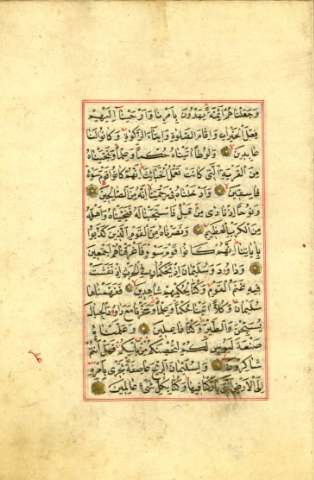 وَجَعَلْنَاهُمْ أَئِمَّةً يَهْدُونَ بِأَمْرِنَا وَأَوْحَيْنَا إِلَيْهِمْ
فِعْلَ الْخَيْرَاتِ وَإِقَامَ الصَّلٰوةِ وَإِيتَاءَ الزَّكٰوةِ وَكَانُوا لَنَا
عَابِدِينَ وَلُوطًا آتَيْنَاهُ حُكْمًا وَعِلْمًا وَنَجَّيْنَاهُ
مِنَ الْقَرْيَةِ الَّتِي كَانَتْ تَعْمَلُ الْخَبَائِثَ إِنَّهُمْ كَانُوا قَوْمَ سَوْءٍ
فَاسِقِينَ وَأَدْخَلْنَاهُ فِي رَحْمَتِنَا إِنَّهُ مِنَ الصَّالِحِينَ
وَنُوحًا إِذْ نَادَى مِنْ قَبْلُ فَاسْتَجَبْنَا لَهُ فَنَجَّيْنَاهُ وَأَهْلَهُ
مِنَ الْكَرْبِ الْعَظِيمِ وَنَصَرْنَاهُ مِنَ الْقَوْمِ الَّذِينَ كَذَّبُوا
بِآيَاتِنَا إِنَّهُمْ كَانُوا قَوْمَ سَوْءٍ فَأَغْرَقْنَاهُمْ أَجْمَعِينَ
وَدَاوُدَ وَسُلَيْمَانَ إِذْ يَحْكُمَانِ فِي الْحَرْثِ إِذْ نَفَشَتْ
فِيهِ غَنَمُ الْقَوْمِ وَكُنَّا لِحُكْمِهِمْ شَاهِدِينَ فَفَهَّمْنَاهَا
سُلَيْمَانَ وَكُلًّا آتَيْنَا حُكْمًا وَعِلْمًا وَسَخَّرْنَا مَعَ دَاوُدَ الْجِبَالَ
يُسَبِّحْنَ وَالطَّيْرَ وَكُنَّا فَاعِلِينَ وَعَلَّمْنَاهُ
صَنْعَةَ لَبُوسٍ لَكُمْ لِتُحْصِنَكُمْ مِنْ بَأْسِكُمْ فَهَلْ أَنْتُمْ
شَاكِرُونَ وَلِسُلَيْمَانَ الرِّيحَ عَاصِفَةً تَجْرِي بِأَمْرِهِ
إِلَى الْأَرْضِ الَّتِي بَارَكْنَا فِيهَا وَكُنَّا بِكُلِّ شَيْءٍ عَالِمِينَ